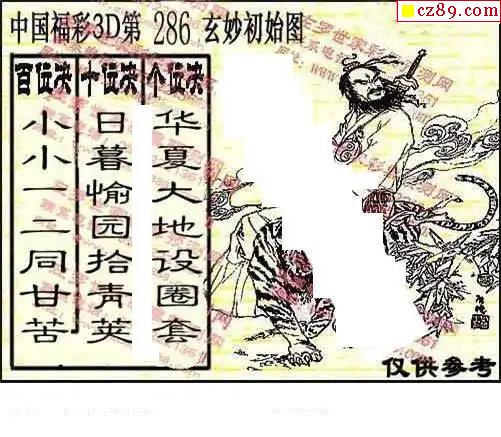 cz89.com
中国福彩3D第 286 玄妙初始图
百位决 十位决 个位决
小小一二同甘苦
日暮愉园拾青荚
华夏大地设圈套
仅供参考